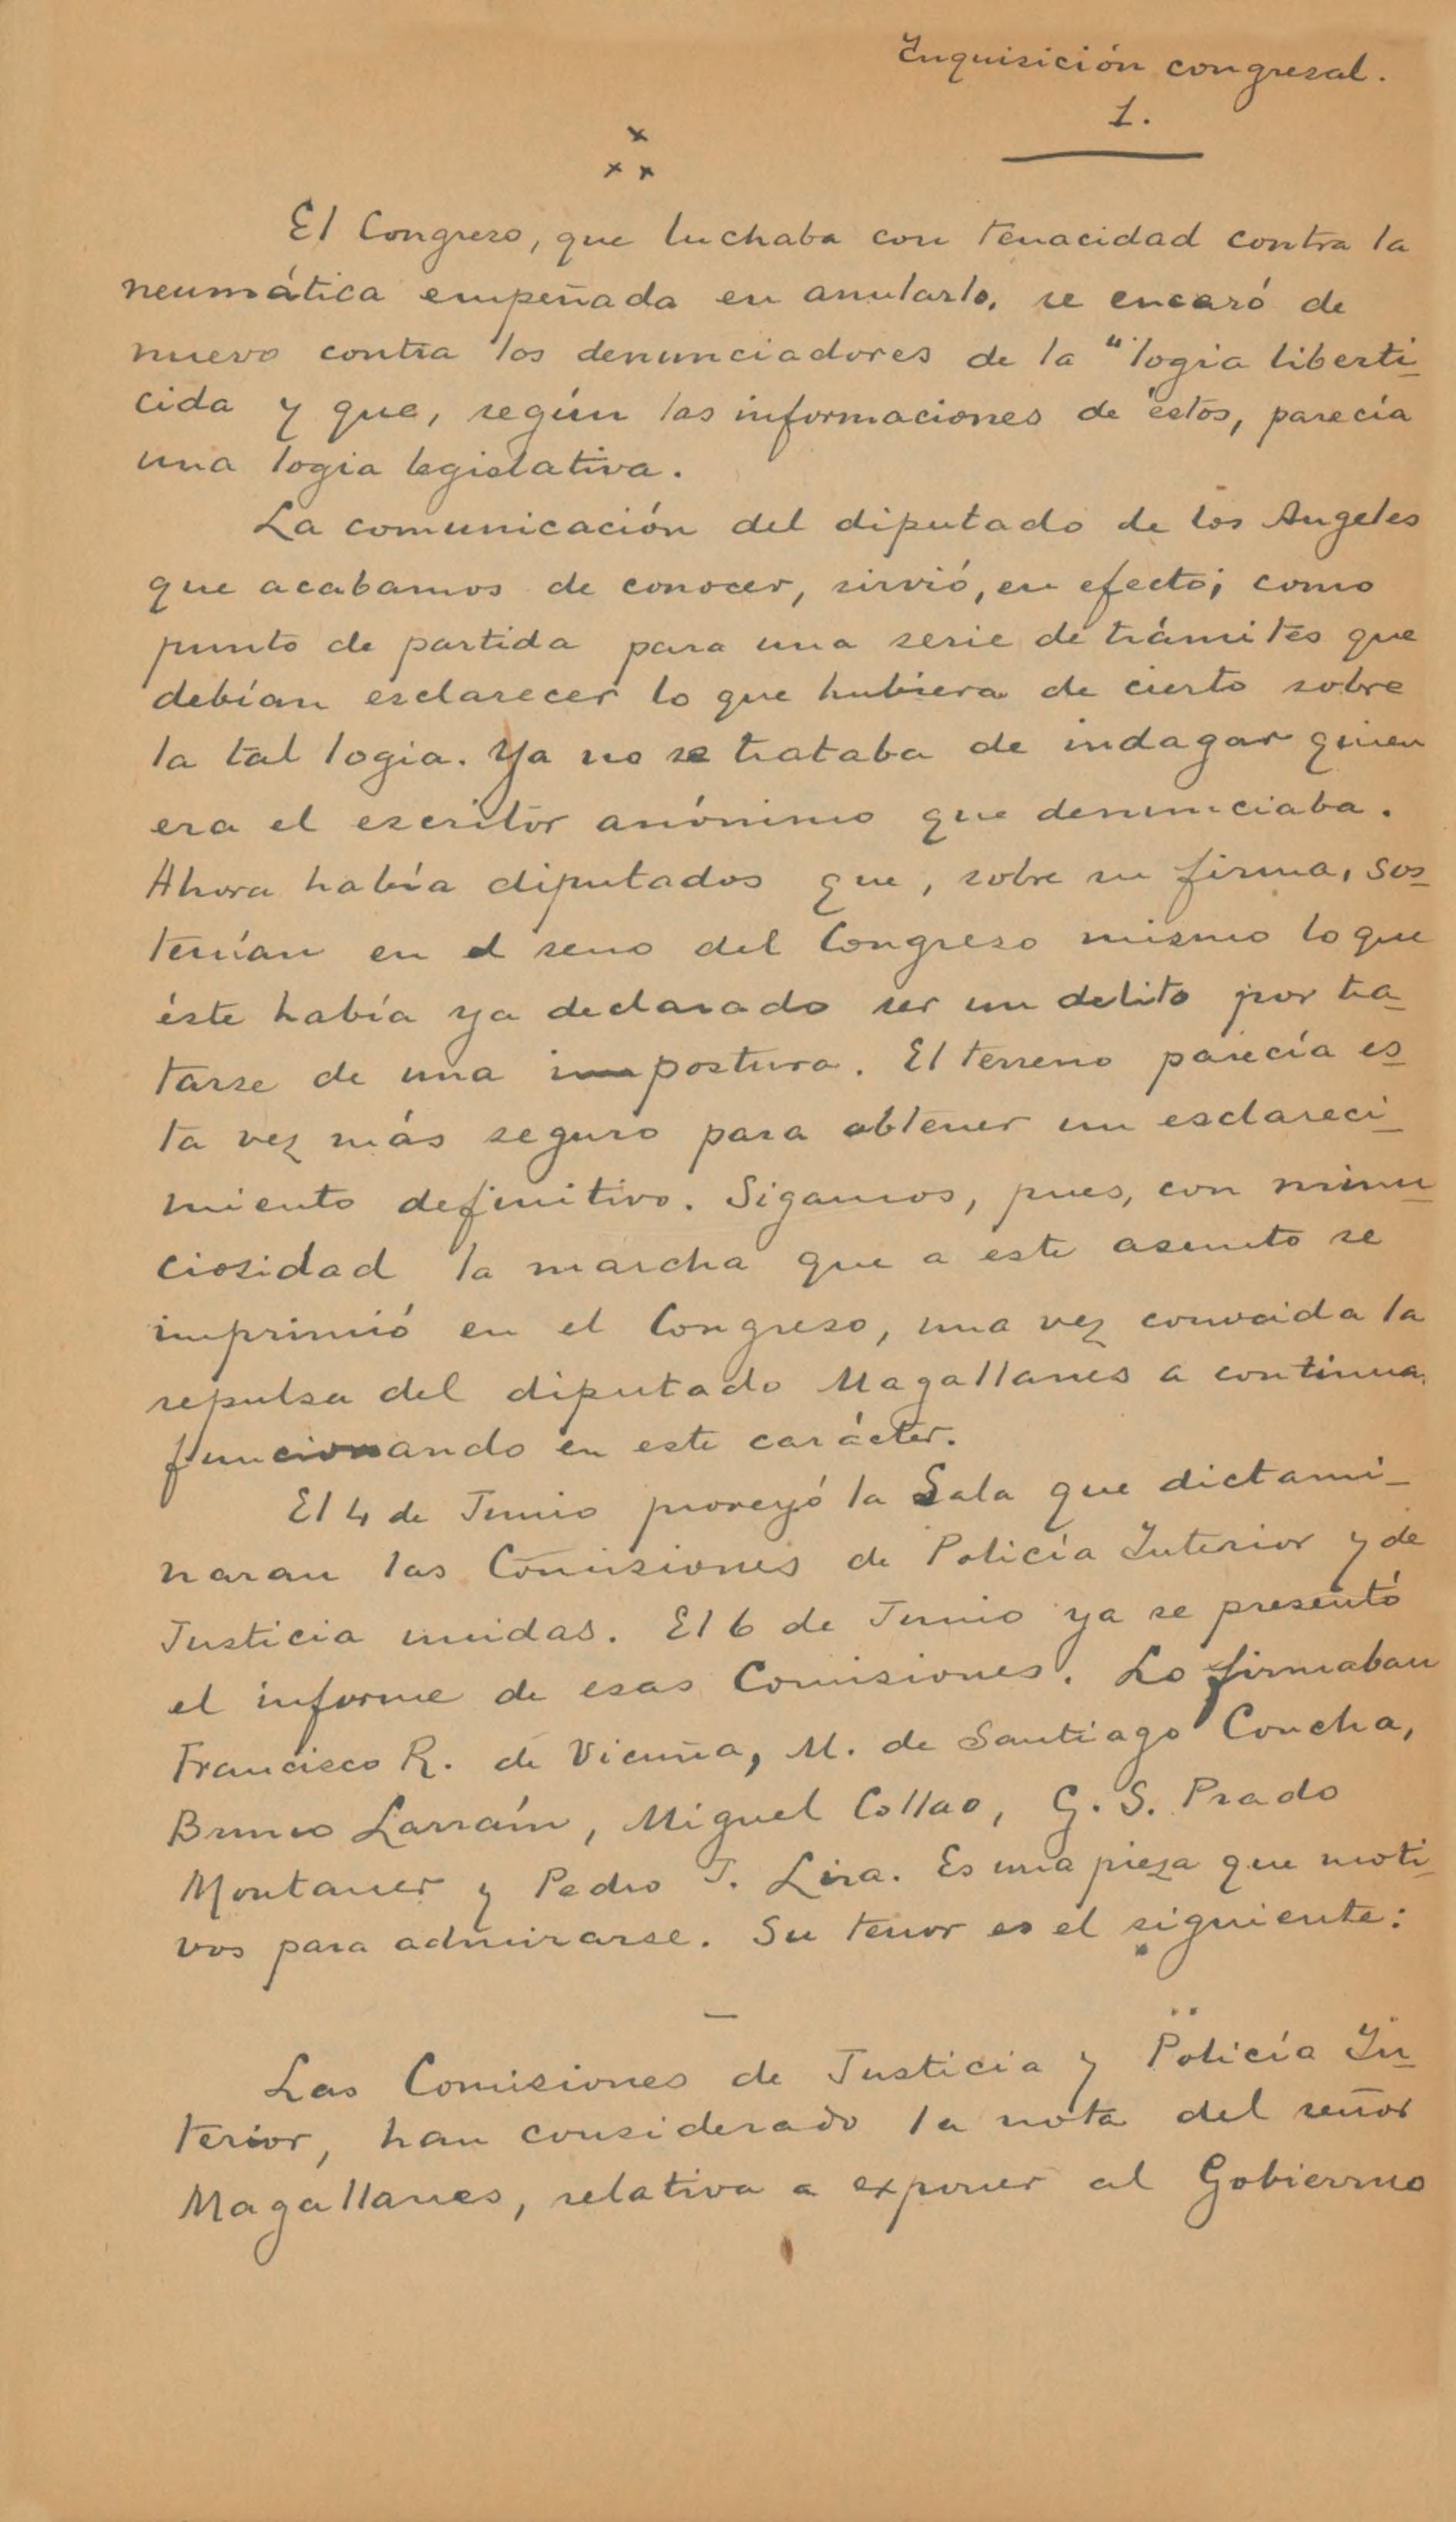 Inquisición congresal.
1.
x
x x
El Congreso, que luchaba con tenacidad contra la
neumática empeñada en anularlo, se encaró de
nuevo contra los denunciadores de la "logia liberti-
cida y que, según las informaciones de éstos, parecía
una logia legislativa.
La comunicación del diputado de los Angeles
que acabamos de conocer, sirvió, en efecto; como
punto de partida para una serie de trámites que
debían esclarecer lo que hubiera de cierto sobre
la tal logia. Ya no se trataba de indagar quien
era el escritor anónimo que denunciaba.
Ahora había diputados que, sobre su firma, sos-
tenían en el seno del Congreso mismo lo que
éste había ya declarado ser un delito por tra-
tarse de una impostura. El terreno parecía es-
ta vez más seguro para obtener un esclareci-
miento definitivo. Sigamos, pues, con minu-
ciosidad la marcha que a este asunto se
imprimió en el Congreso, una vez conocida la
repulsa del diputado Magallanes a continuar
funcionando en este carácter.
El 4 de Junio proveyó la Sala que dictami-
naran las Comisiones de Policía Interior y de
Justicia unidas. El 6 de Junio ya se presentó
el informe de esas Comisiones. Lo firmaban
Francisco R. de Vicuña, M. de Santiago Concha,
Bruno Larraín, Miguel Collao, G. S. Prado
Montaner y Pedro T. Lira. Es una pieza que moti-
vos para admirarse. Su tenor es el siguiente:
—
Las Comisiones de Justicia y Policía In-
terior, han considerado la nota del señor
Magallanes, relativa a exponer al Gobierno